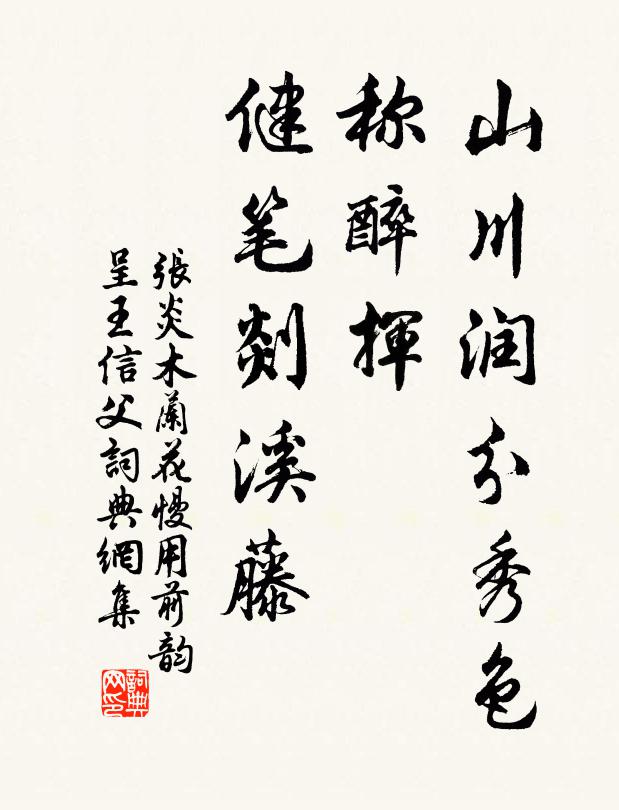 山川润分秀色
称醉揮
健笔剡溪藤
張炎木蘭花慢用前韵
呈王信父詞典網集
詞典网印